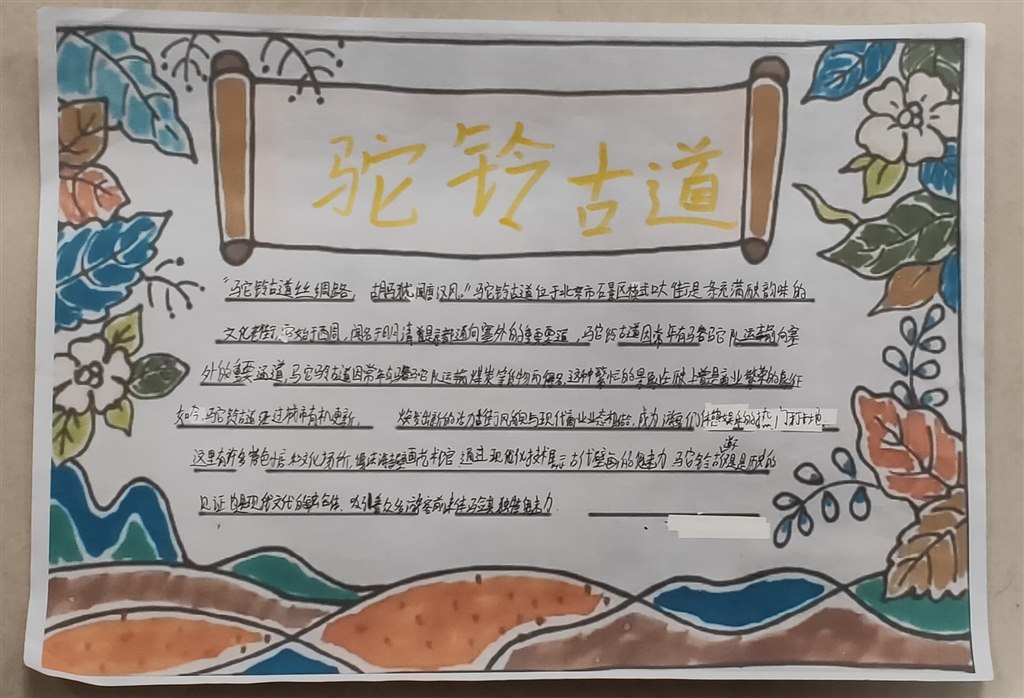 驼铃古道
"驼铃古道丝绸路，胡马犹闻唐汉风。"驼铃古道位于北京市石景区模式口大街是一条充满历史韵味的
文化老街，它始于西周，闻名于明清曾是京都通向塞外的重要要道，驼铃古道因常年有马帮驼队运输向塞
外的重要通道，驼铃古道因常年有驼队运输煤炭等货物而得名，这种繁忙的景象在历史上曾是商业繁荣的象征
如今，驼铃古道经过城市有机更新，焕发出新的活力，街风貌与现代商业业态相结合，成为游客们休憩娱乐的热门打卡地
这里有许多特色馆和文化场所，像法海寺壁画艺术馆 通过现代化技术展示古代壁画的魅力 驼铃古道既是历史的
见证 也是现代文化的融合体，吸引着众多游客前来体验其独特魅力